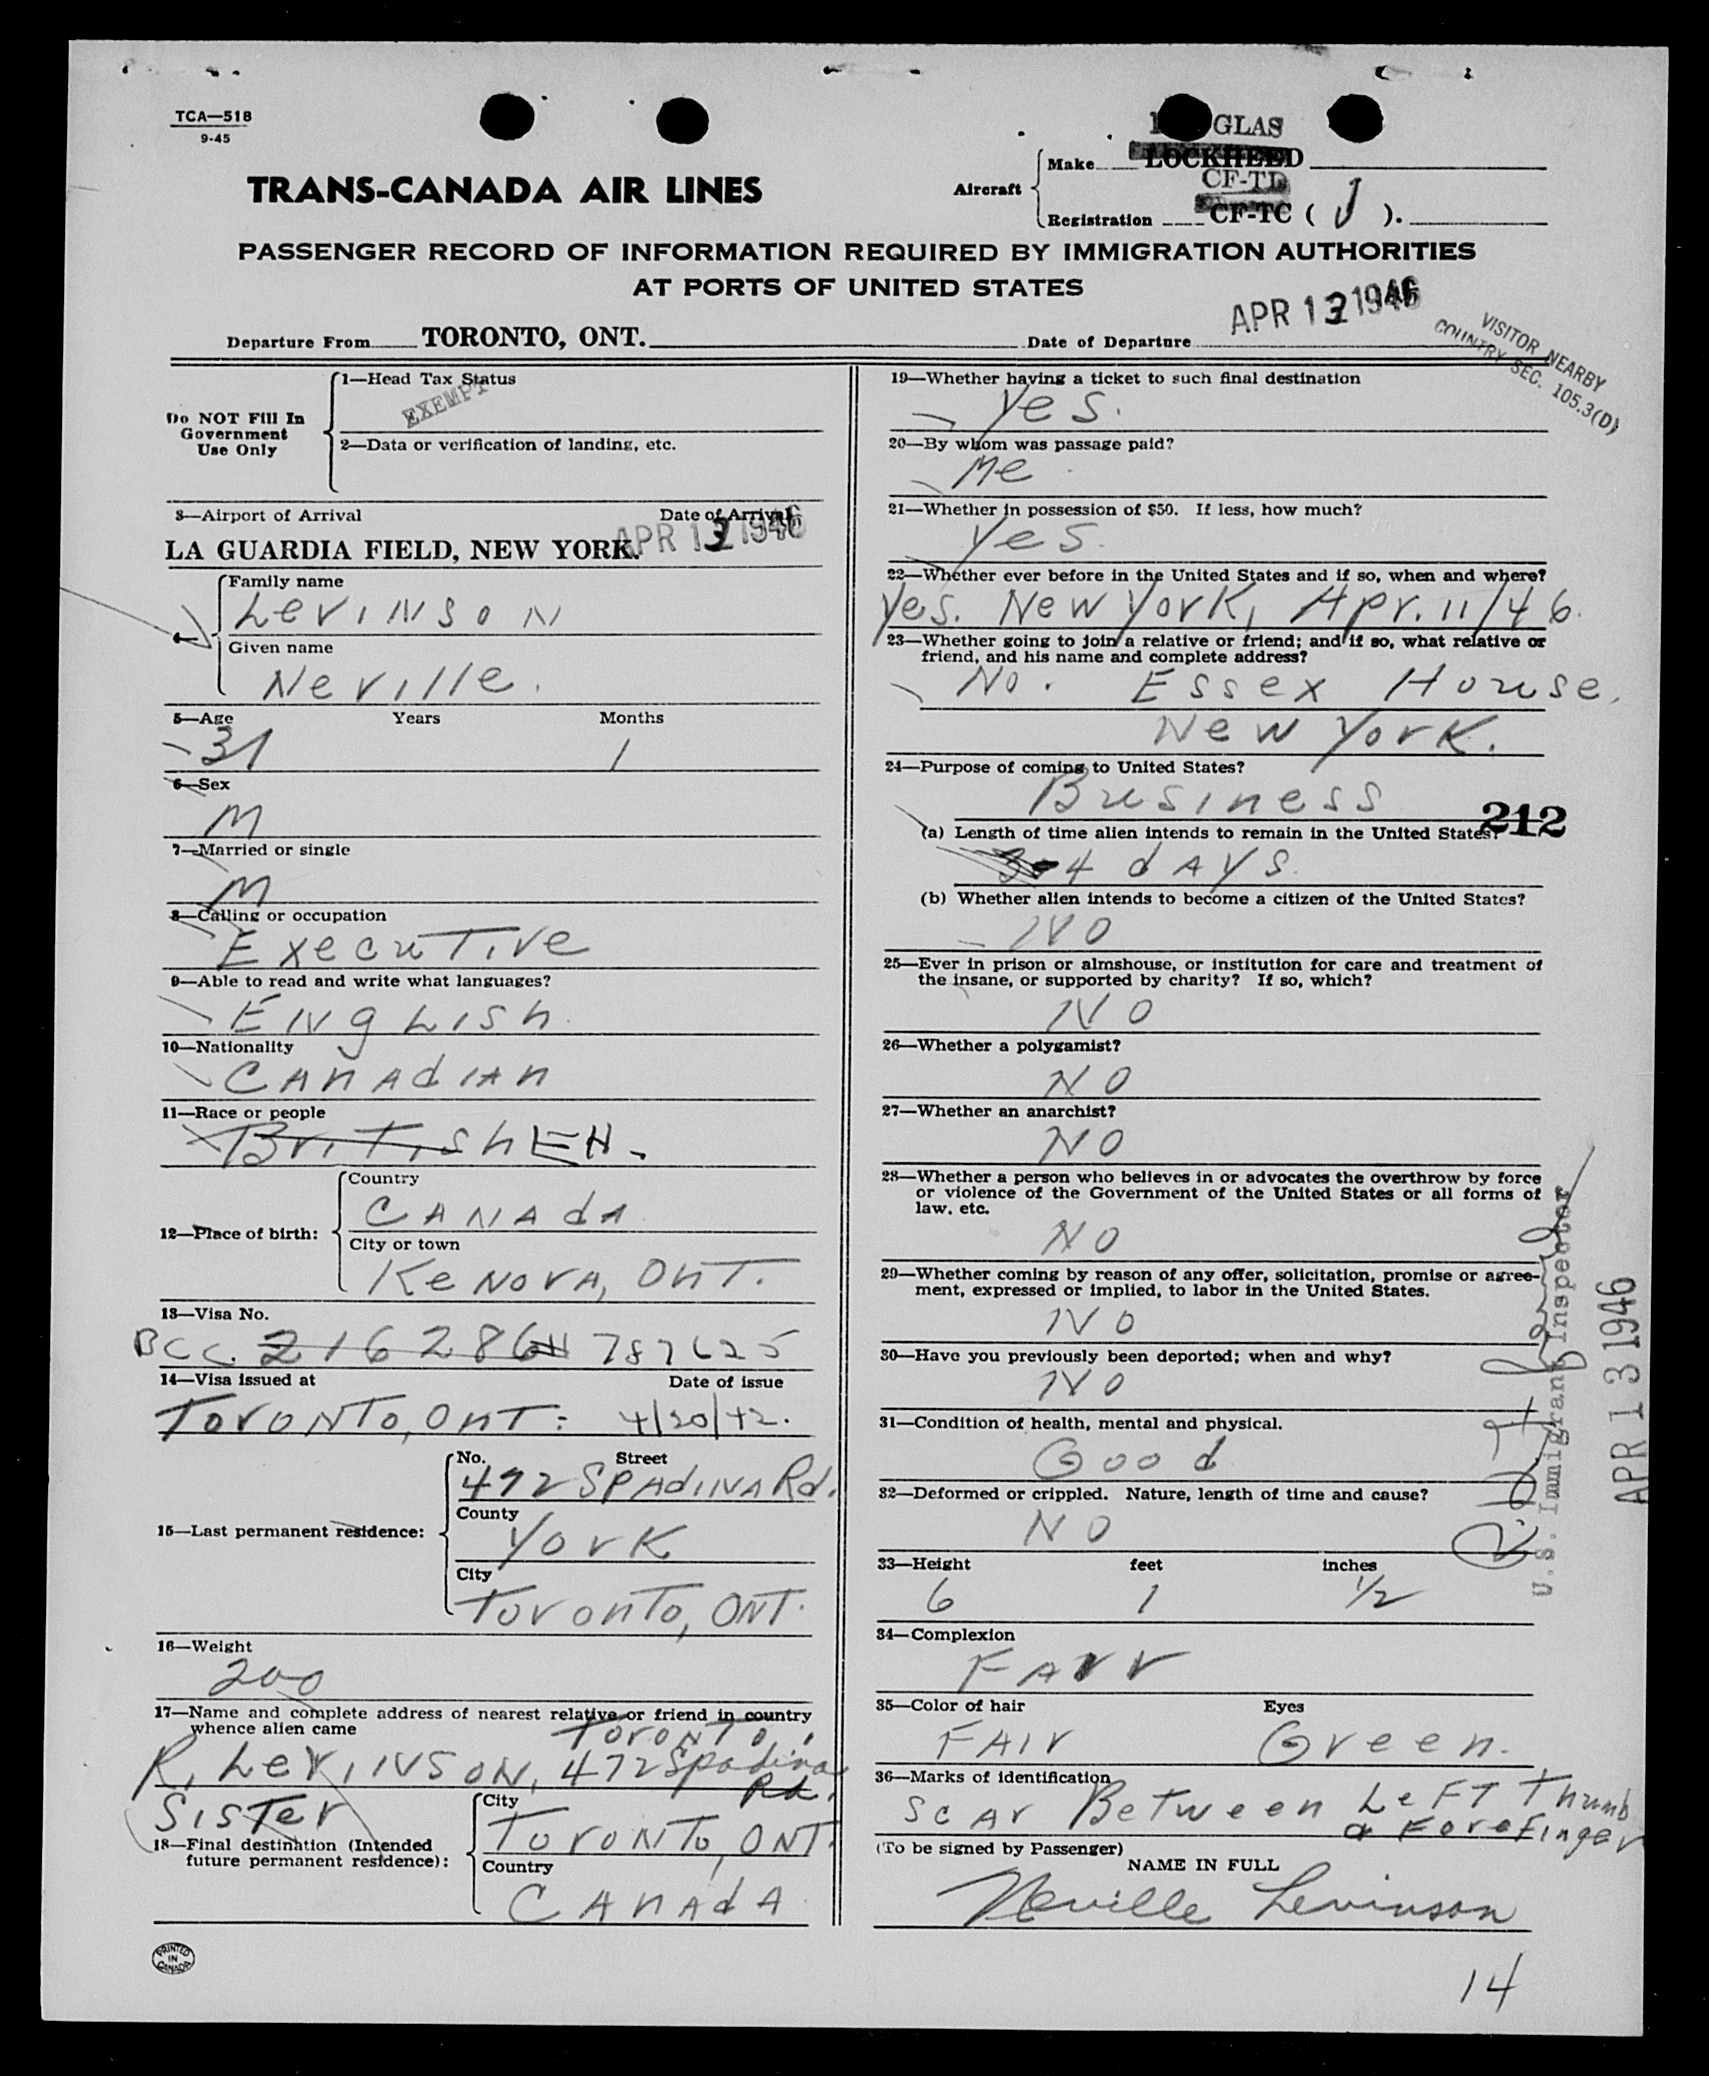 TCA—518
9-45
GLAS
Make LOCKHEED
CF-TD
Aircraft
Registration CF-TC ( J ).
TRANS-CANADA AIR LINES
PASSENGER RECORD OF INFORMATION REQUIRED BY IMMIGRATION AUTHORITIES
AT PORTS OF UNITED STATES
APR 13 1946
Departure From TORONTO, ONT. Date of Departure
VISITOR NEARBY
COUNTRY SEC. 105.3(D)
Do NOT Fill In
Government
Use Only
1—Head Tax Status
EXEMPT
2—Data or verification of landing, etc.
3—Airport of Arrival Date of Arrival
LA GUARDIA FIELD, NEW YORK. APR 13 1946
Family name
Levinson
4
Given name
Neville.
5—Age Years Months
31 1
6—Sex
M
7—Married or single
M
8—Calling or occupation
Executive
9—Able to read and write what languages?
English
10—Nationality
Canadian
11—Race or people
British EH.
12—Place of birth:
Country
Canada
City or town
Kenora, Ont.
13—Visa No.
BCC. 216286 787625
14—Visa issued at Date of issue
Toronto, Ont: 4/20/42.
15—Last permanent residence:
No. Street
472 Spadina Rd.
County
York
City
Toronto, Ont.
16—Weight
200
17—Name and complete address of nearest relative or friend in country
whence alien came
Toronto,
R. Levinson, 472 Spadina
Rd.
Sister
18—Final destination (Intended
future permanent residence):
City
Toronto, Ont.
Country
Canada
PRINTED
IN
CANADA
19—Whether having a ticket to such final destination
Yes.
20—By whom was passage paid?
Me
21—Whether in possession of $50. If less, how much?
Yes.
22—Whether ever before in the United States and if so, when and where?
Yes. New York, Apr. 11/46.
23—Whether going to join a relative or friend; and if so, what relative or
friend, and his name and complete address?
No. Essex House,
New York.
24—Purpose of coming to United States?
Business
212
(a) Length of time alien intends to remain in the United States?
4 days.
(b) Whether alien intends to become a citizen of the United States?
No
25—Ever in prison or almshouse, or institution for care and treatment of
the insane, or supported by charity? If so, which?
No
26—Whether a polygamist?
No
27—Whether an anarchist?
No
28—Whether a person who believes in or advocates the overthrow by force
or violence of the Government of the United States or all forms of
law, etc.
No
29—Whether coming by reason of any offer, solicitation, promise or agree-
ment, expressed or implied, to labor in the United States.
No
30—Have you previously been deported; when and why?
No
31—Condition of health, mental and physical.
Good
32—Deformed or crippled. Nature, length of time and cause?
No
33—Height feet inches
6 1 1/2
34—Complexion
Fair
35—Color of hair Eyes
Fair Green.
36—Marks of identification
Scar Between Left Thumb
& Forefinger
(To be signed by Passenger)
NAME IN FULL
Neville Levinson
U.S. Immigrant Inspector
APR 13 1946
14